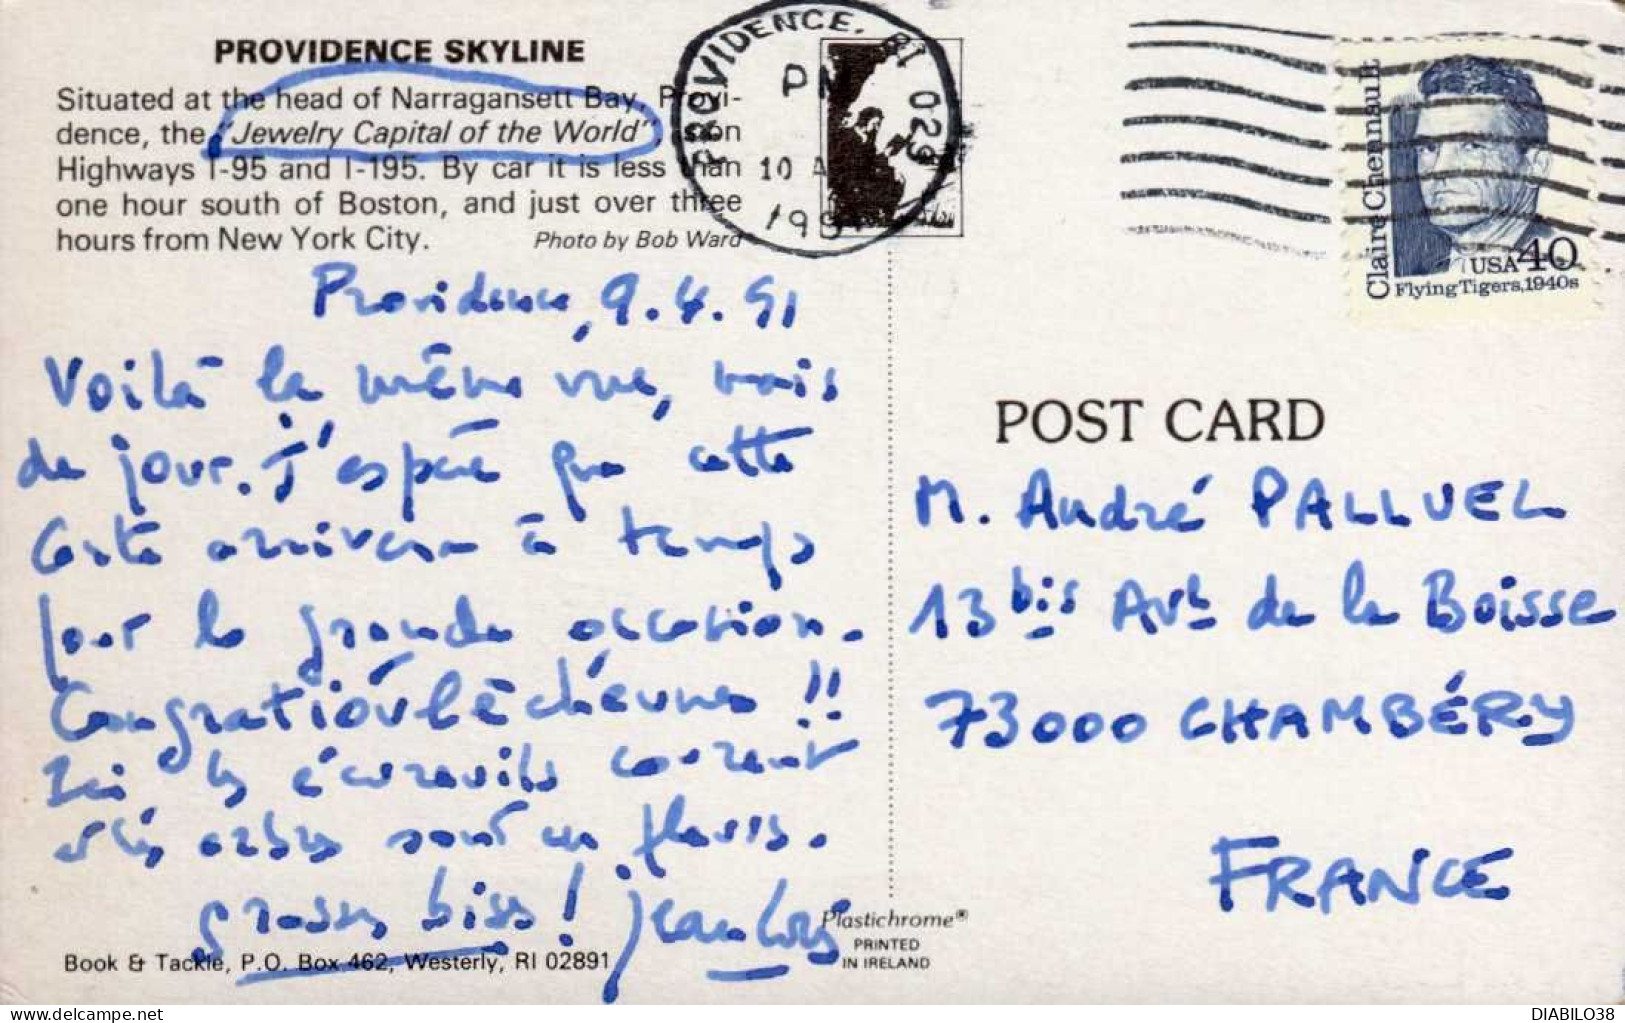 PROVIDENCE SKYLINE
Situated at the head of Narragansett Bay, Provi-
dence, the "Jewelry Capital of the World", is on
Highways I-95 and I-195. By car it is less than
one hour south of Boston, and just over three
hours from New York City. Photo by Bob Ward
PROVIDENCE, RI 029
PM
10 A
199
Claire Chennault
USA 40
Flying Tigers, 1940s
Providence, 9.4.91
Voilà la même vue, mais
de jour. J'espère que cette
Carte arrivera à temps
pour la grande occasion.
!!
Ici, les écureuils courent
et les arbres sont en fleurs.
grosses bises! Jean Louis
POST CARD
M. André PALLUEL
13 bis Av. de la Boisse
73000 CHAMBÉRY
FRANCE
Plastichrome®
PRINTED
IN IRELAND
Book & Tackle, P.O. Box 462, Westerly, RI 02891
delcampe.net
DIABILO38